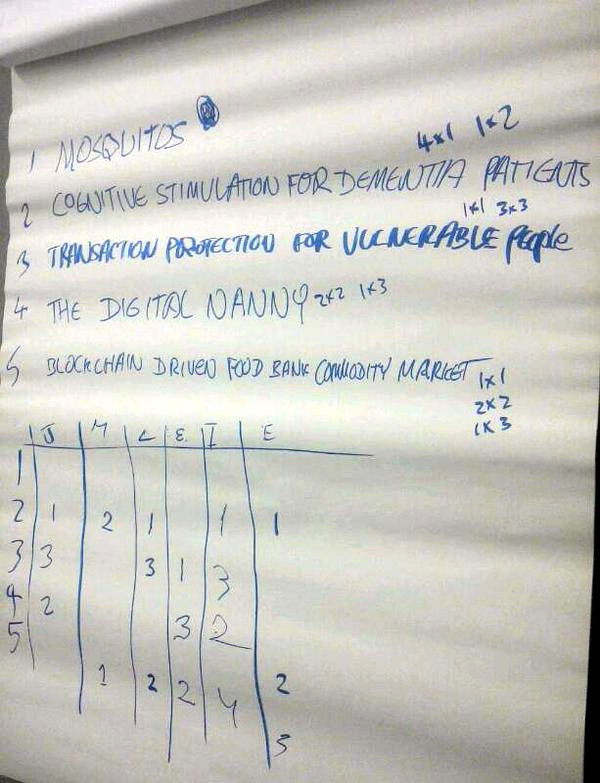 4x1 1x2
1 MOSQUITOS
2 COGNITIVE STIMULATION FOR DEMENTIA PATIENTS
1x1 3x3
3 TRANSACTION PROTECTION FOR VULNERABLE People
4 THE DIGITAL NANNY 2x2 1x3
5 BLOCKCHAIN DRIVEN FOOD BANK COMMODITY MARKET 1x1
2x2
1x3
J M L E. I E
1
2 1 2 1 1 1
3 3 3 1 3
4 2 3 2
5
1 2 2 4 2
3